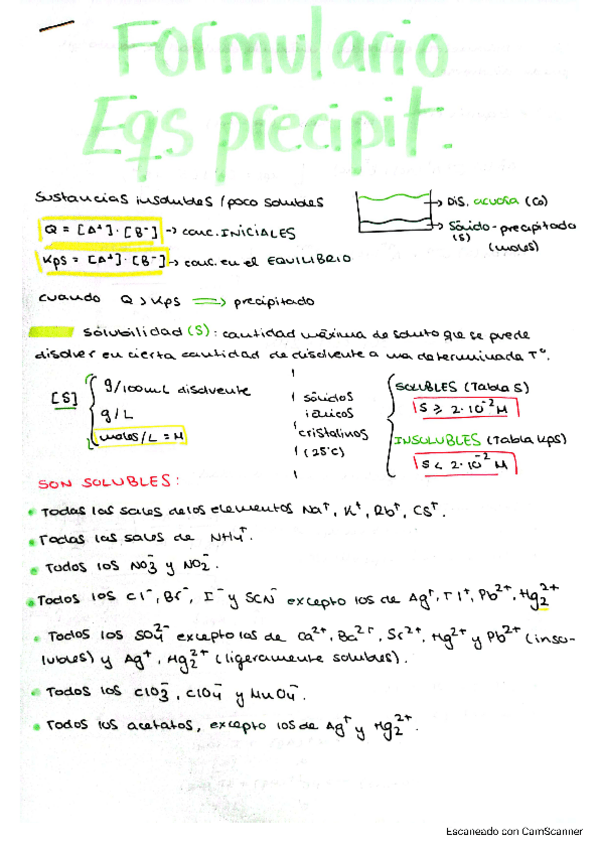 Formulario
Eqs precipit.
Sustancias insolubles / poco solubles
Dis. acuosa (Co)
Sólido-precipitado
(s) (moles)
Q = [A⁺]·[B⁻] → conc. INICIALES
Kps = [A⁺]·[B⁻] → conc. en el EQUILIBRIO
cuando Q > Kps ⟹ precipitado
Solubilidad (S): cantidad máxima de soluto que se puede
disolver en cierta cantidad de disolvente a una determinada Tº.
[S]
g/100mL disolvente
g/L
moles/L = M
sólidos
iónicos
cristalinos
(25°C)
SOLUBLES (Tabla S)
S ≥ 2·10⁻² M
INSOLUBLES (Tabla Kps)
S < 2·10⁻² M
SON SOLUBLES:
• Todas las sales de los elementos Na⁺, K⁺, Rb⁺, Cs⁺.
• Todas las sales de NH₄⁺.
• Todos los NO₃⁻ y NO₂⁻.
• Todos los Cl⁻, Br⁻, I⁻ y SCN⁻ excepto los de Ag⁺, Tl⁺, Pb²⁺, Hg₂²⁺
• Todos los SO₄²⁻ excepto los de Ca²⁺, Ba²⁺, Sr²⁺, Hg²⁺ y Pb²⁺ (inso-
lubles) y Ag⁺, Hg₂²⁺ (ligeramente solubles).
• Todos los ClO₃⁻, ClO₄⁻ y MnO₄⁻.
• Todos los acetatos, excepto los de Ag⁺ y Hg₂²⁺.
Escaneado con CamScanner